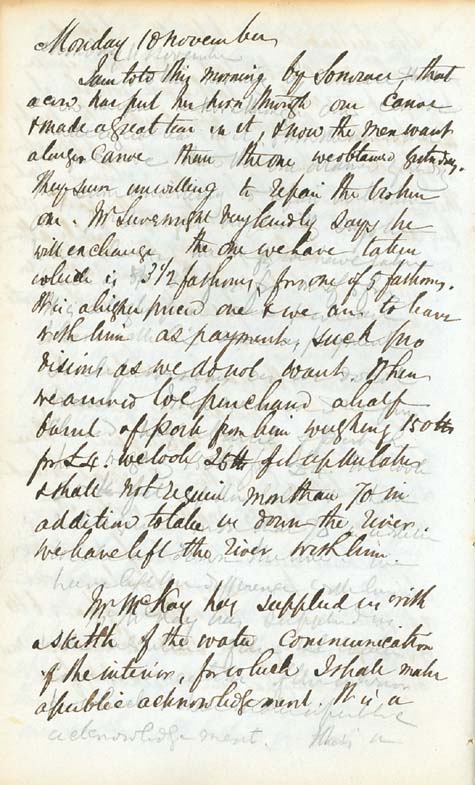 Monday 10 November
I am told this morning by Sommer that
a cow has put her horn through our Canoe
& made a great tear in it, & now the men want
a larger Canoe than the one we obtained Saturday.
They seem unwilling to repair the broken
one. Mr very kindly says he
will exchange the one we have taken
which is 3 1/2 fathoms, for one of 5 fathoms.
It is a higher priced one & we are to leave
with him as payment, such pro
visions as we do not want. When
we arrived we purchased a half
barrel of pork from him weighing 150 lbs
for £4. we took 25 lbs of it up the lake
& shall not require more than 70 in
addition to take us down the river.
we have left the with him.
Mr McKay has supplied us with
a sketch of the water communication
of the interior, for which I shall make
a public acknowledgement. It is a
acknowledgement. This is a